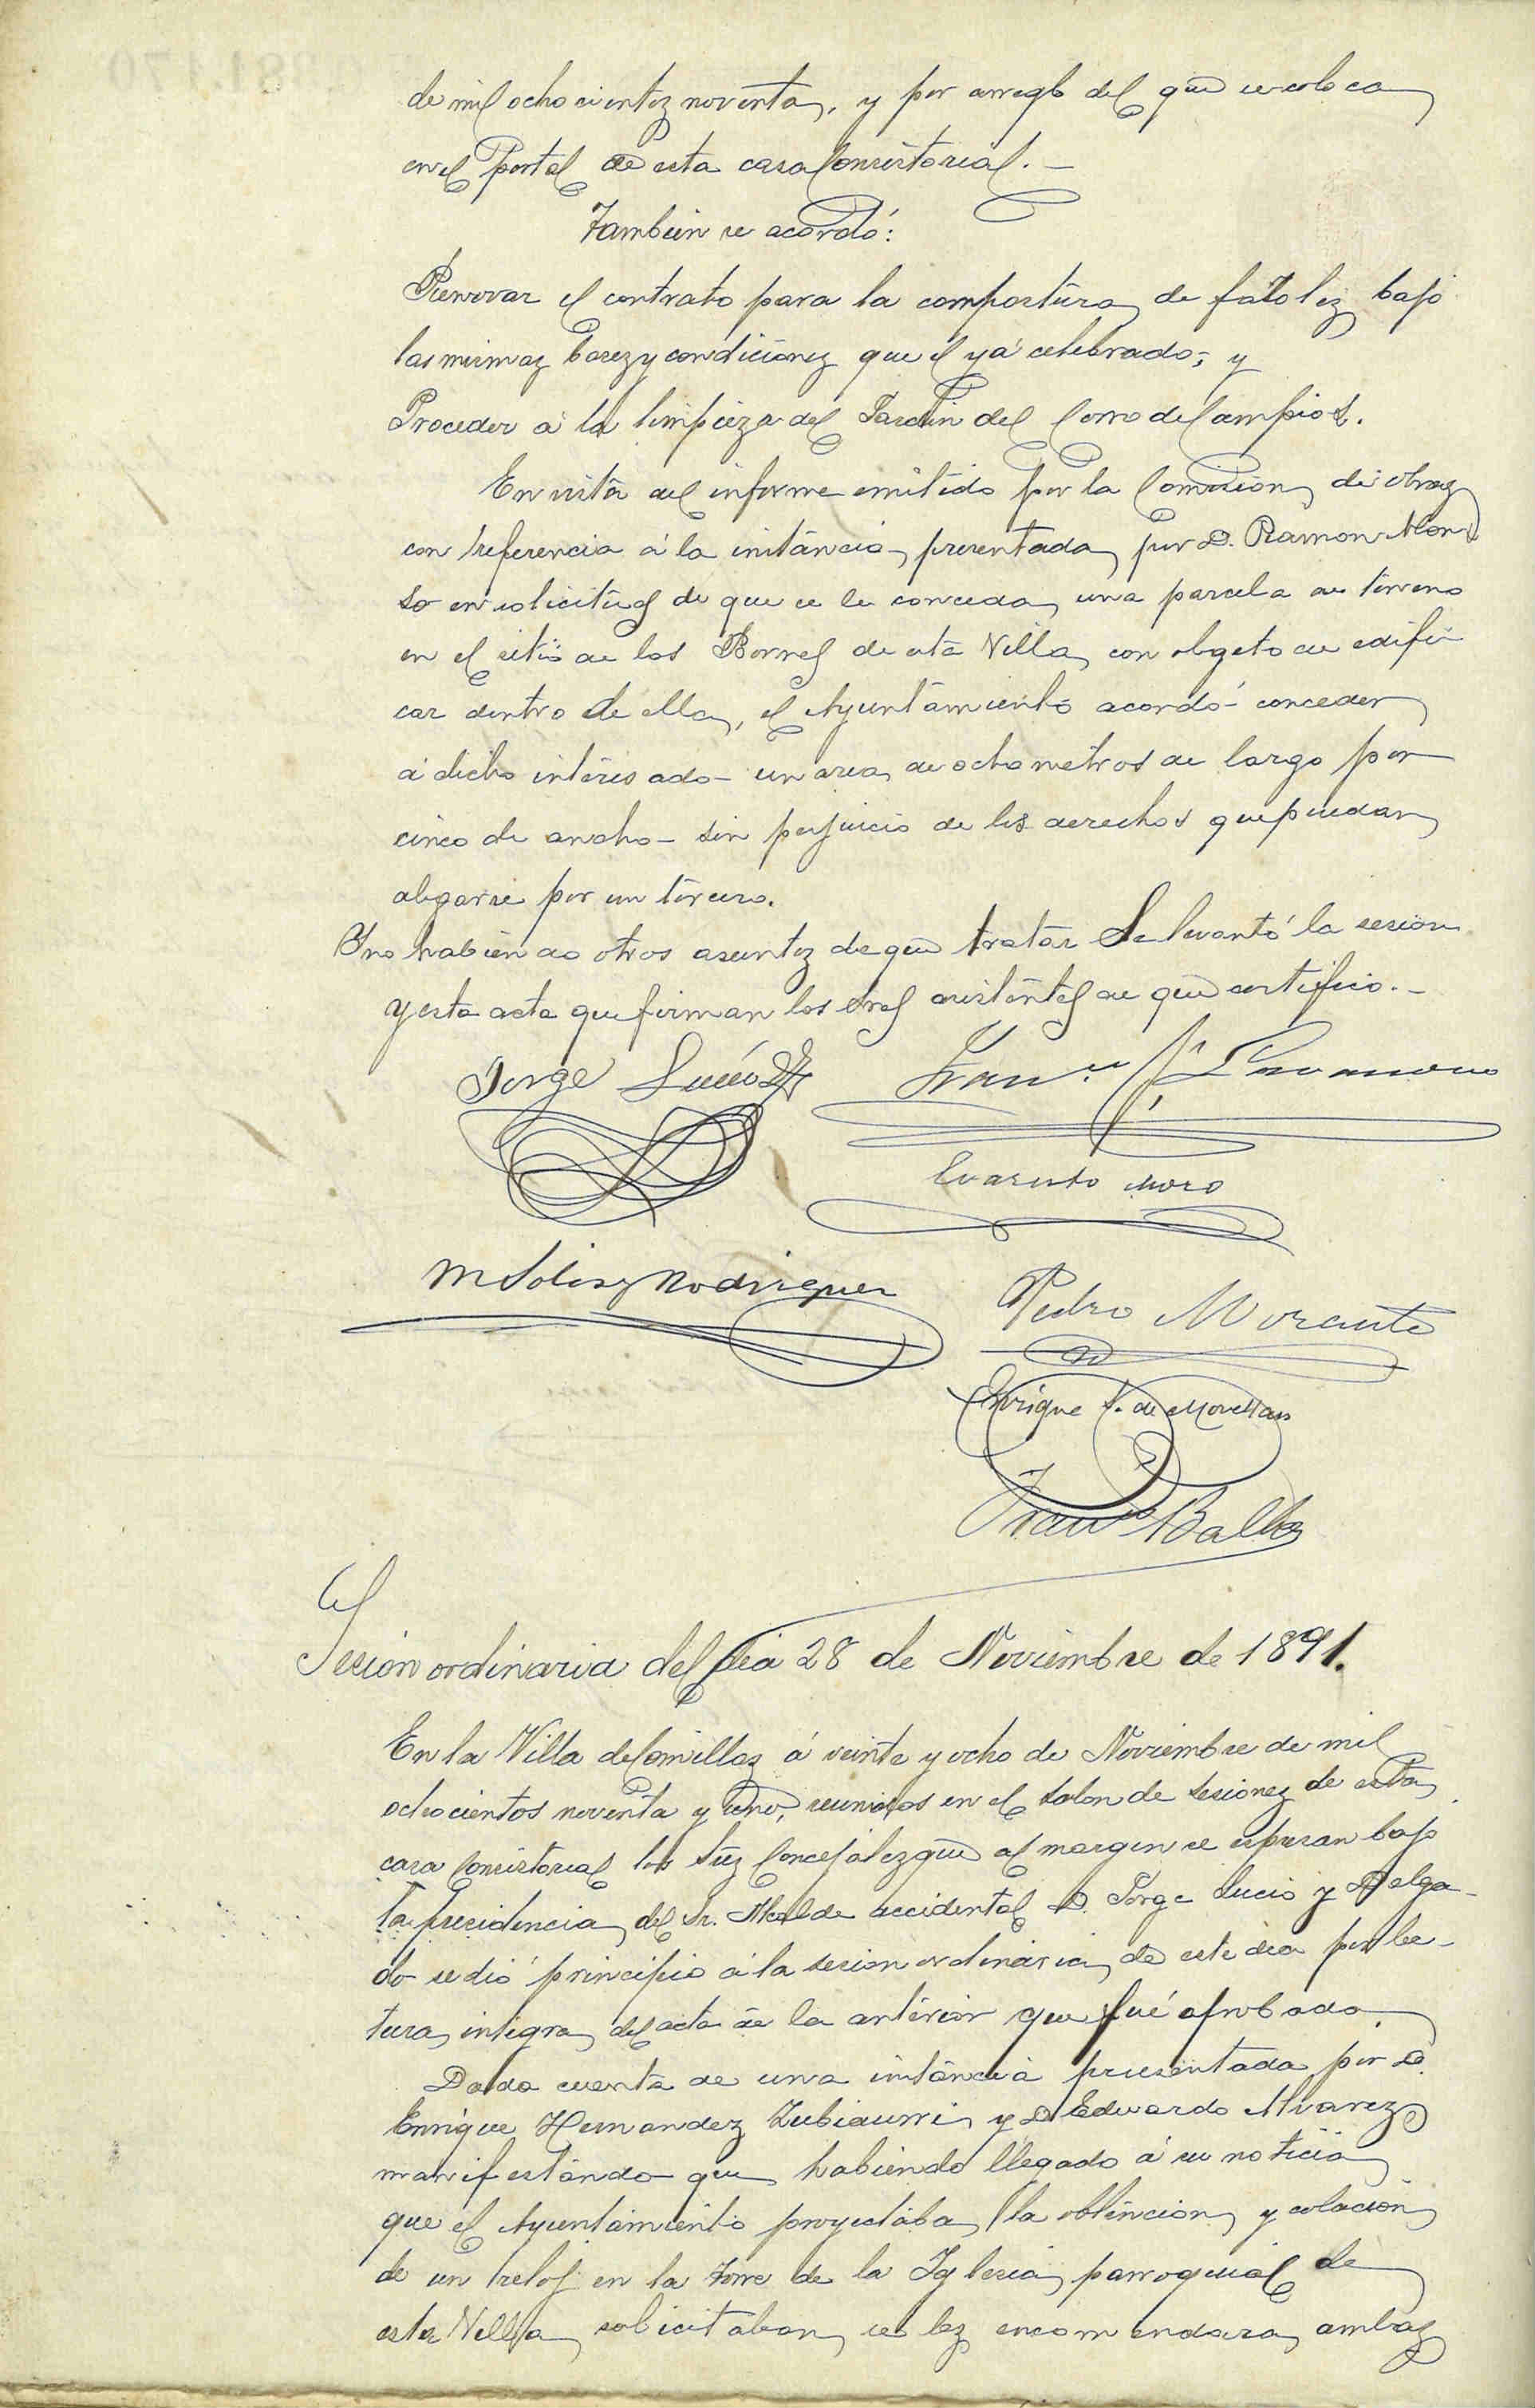 de mil ochocientos noventa, y por arreglo del que se coloca
en el portal de esta casa Consistorial.—
Tambien se acordó:
Renovar el contrato para la compostura de faroles bajo
las mismas bases y condiciones que el yá celebrado; y
Proceder á la limpieza del Jardin del Corro de Campios.
En vista del informe emitido por la Comision de obras
con referencia á la instáncia presentada por D. Ramon Alon-
so en solicitud de que se le conceda una parcela de terreno
en el sitio de los de esta Villa con obgeto de edifi-
car dentro de ella, el Ayuntamiento acordó conceder
á dicho interesado un area de ocho metros de largo por
cinco de ancho- sin perjuicio de los derechos que puedan
alegarse por un tercero.
Y no habiendo otros asuntos de que tratar Se levantó la sesion
y esta acta que firman los Sres asistentes de que certifico.—
Jorge Lucio
Franco
Evaristo Moro
M Solis y Rodriguez
Pedro Morante
Enrique S. de Movellan
Franco Balbas
Sesion ordinaria del dia 28 de Noviembre de 1891.
En la Villa de Comillas á veinte y ocho de Noviembre de mil
ochocientos noventa y uno, reunidos en el salon de sesiones de esta
casa Consistorial los Sres Concejales que al margen se espresan bajo
la presidencia del Sr. Alcalde accidental D. Jorge Lucio y Delga-
do se dió principio á la sesion ordinaria de este dia por lec-
tura integra del acta de la anterior que fué aprobada
Dada cuenta de una instáncia presentada por D.
Enrique Hernandez Zubiaurri y D Eduardo Alvarez
manifestándo que habiendo llegado á su noticia
que el Ayuntamiento proyectaba la obtencion y colacion
de un reloj en la torre de la Iglesia parroquial de
esta Villa solicitaban se les encomendara ambas